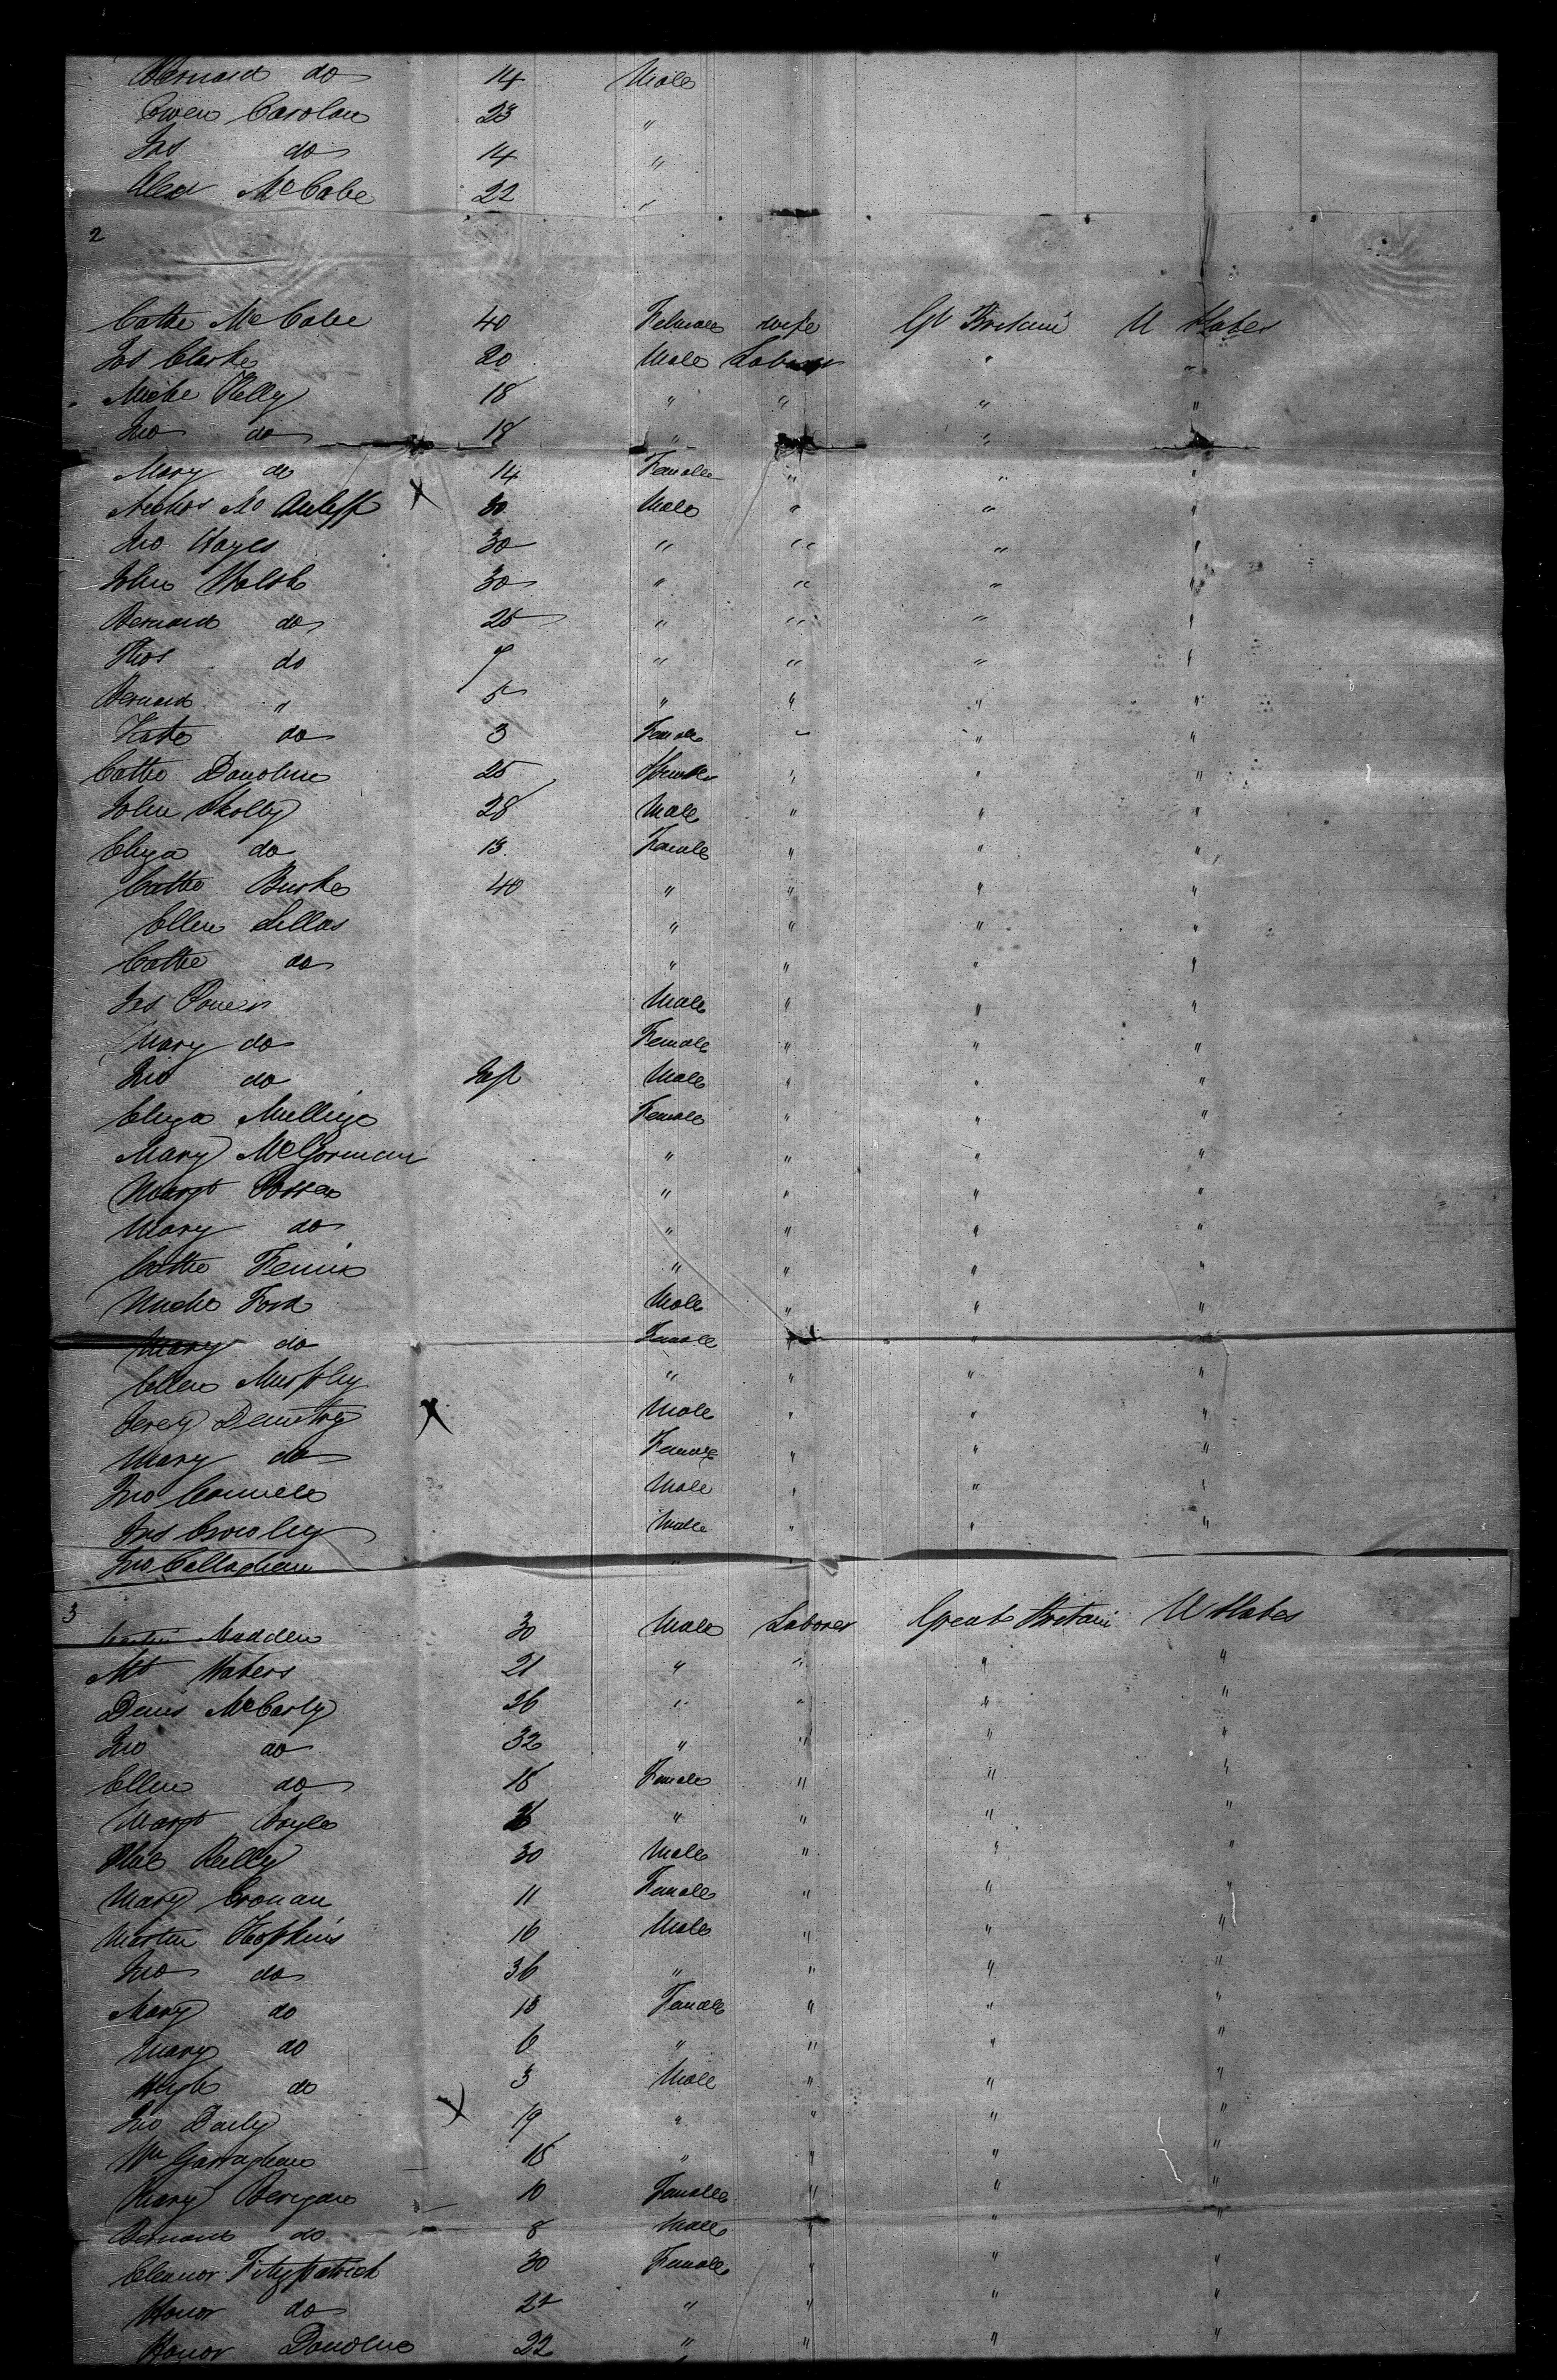 Bernard do 14 Male
Owen Carolan 23 "
Jas do 14 "
Alex McCabe 22 "
2
Cathe McCabe 40 Female wife Gt Britain U States
Jas Clarke 20 Male Laborer " "
Miche Kelly 18 " " " "
Jno do 18 " "
Mary do 14 Female " " "
Nichos McAuliff 30 Male " " "
Jno Hayes 30 " " " "
John Walsh 30 " " " "
Bernard do 25 " " " "
Thos do 7 " " " "
Bernard " 5 " " " "
Kate do 3 Female " " "
Cathe Donohue 25 Female " " "
John Kelly 28 Male " " "
Eliza do 13 Female " " "
Cathe Burke 40 " " " "
Ellen " " " "
Cathe do " " " "
Jas Power Male " " "
Mary do Female " " "
Jno do Inft Male " " "
Eliza Female " " "
Mary McGorman " " " "
Margt " " " "
Mary do " " " "
Cathe " " " "
Miche Ford Male " " "
Mary do Female " " "
Ellen Murphy " " " "
Male " " "
Mary do Female " " "
Jno Male " " "
Jas Crowley Male " " "
Jno Callaghan "
3
Madden 30 Male Laborer Great Britain U States
Mt Waters 21 " " " "
Denis McCarty 26 " " " "
Jno do 32 " " " "
Ellen do 18 Female " " "
Margt Boyle " " " "
Reilly 30 Male " " "
Mary Cronan 11 Female " " "
Martin Hopkins 16 Male " " "
Jno do 36 " " " "
Mary do 13 Female " " "
Mary do 6 " " " "
Hugh do 3 Male " " "
Jno Daily 19 " " " "
Wm Garraghan 18 " " " "
Mary Berigan 10 Female " " "
Bernard do 8 Male " " "
Eleanor Fitzpatrick 30 Female " " "
Honor do 22 " " " "
Honor Donohue 22 " " " "